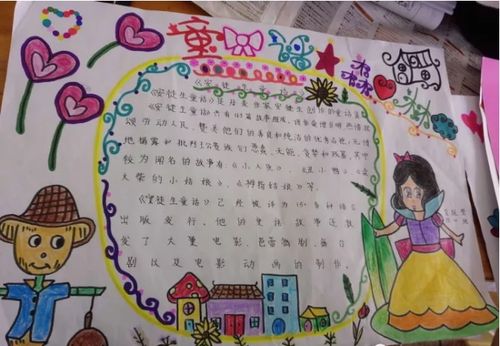 童
森林
《安徒生童话》
《安徒生童话》是丹麦作家安徒生创作的童话集
《安徒生童话》共有166篇故事组成，该作爱憎分明，热情歌
颂劳动人民、赞美他们的善良和纯洁的优秀品德；无情
地揭露和批判王公贵族们愚蠢、无能、贪婪和残暴。其中
较为闻名的故事有：《小人鱼》、《丑小鸭》、《卖
火柴的小姑娘》、《拇指姑娘》等。
《安徒生童话》已经被译为150多种语言
出版发行。他的童话故事还激
发了大量电影、芭蕾舞剧、舞台
剧以及电影动画的制作。